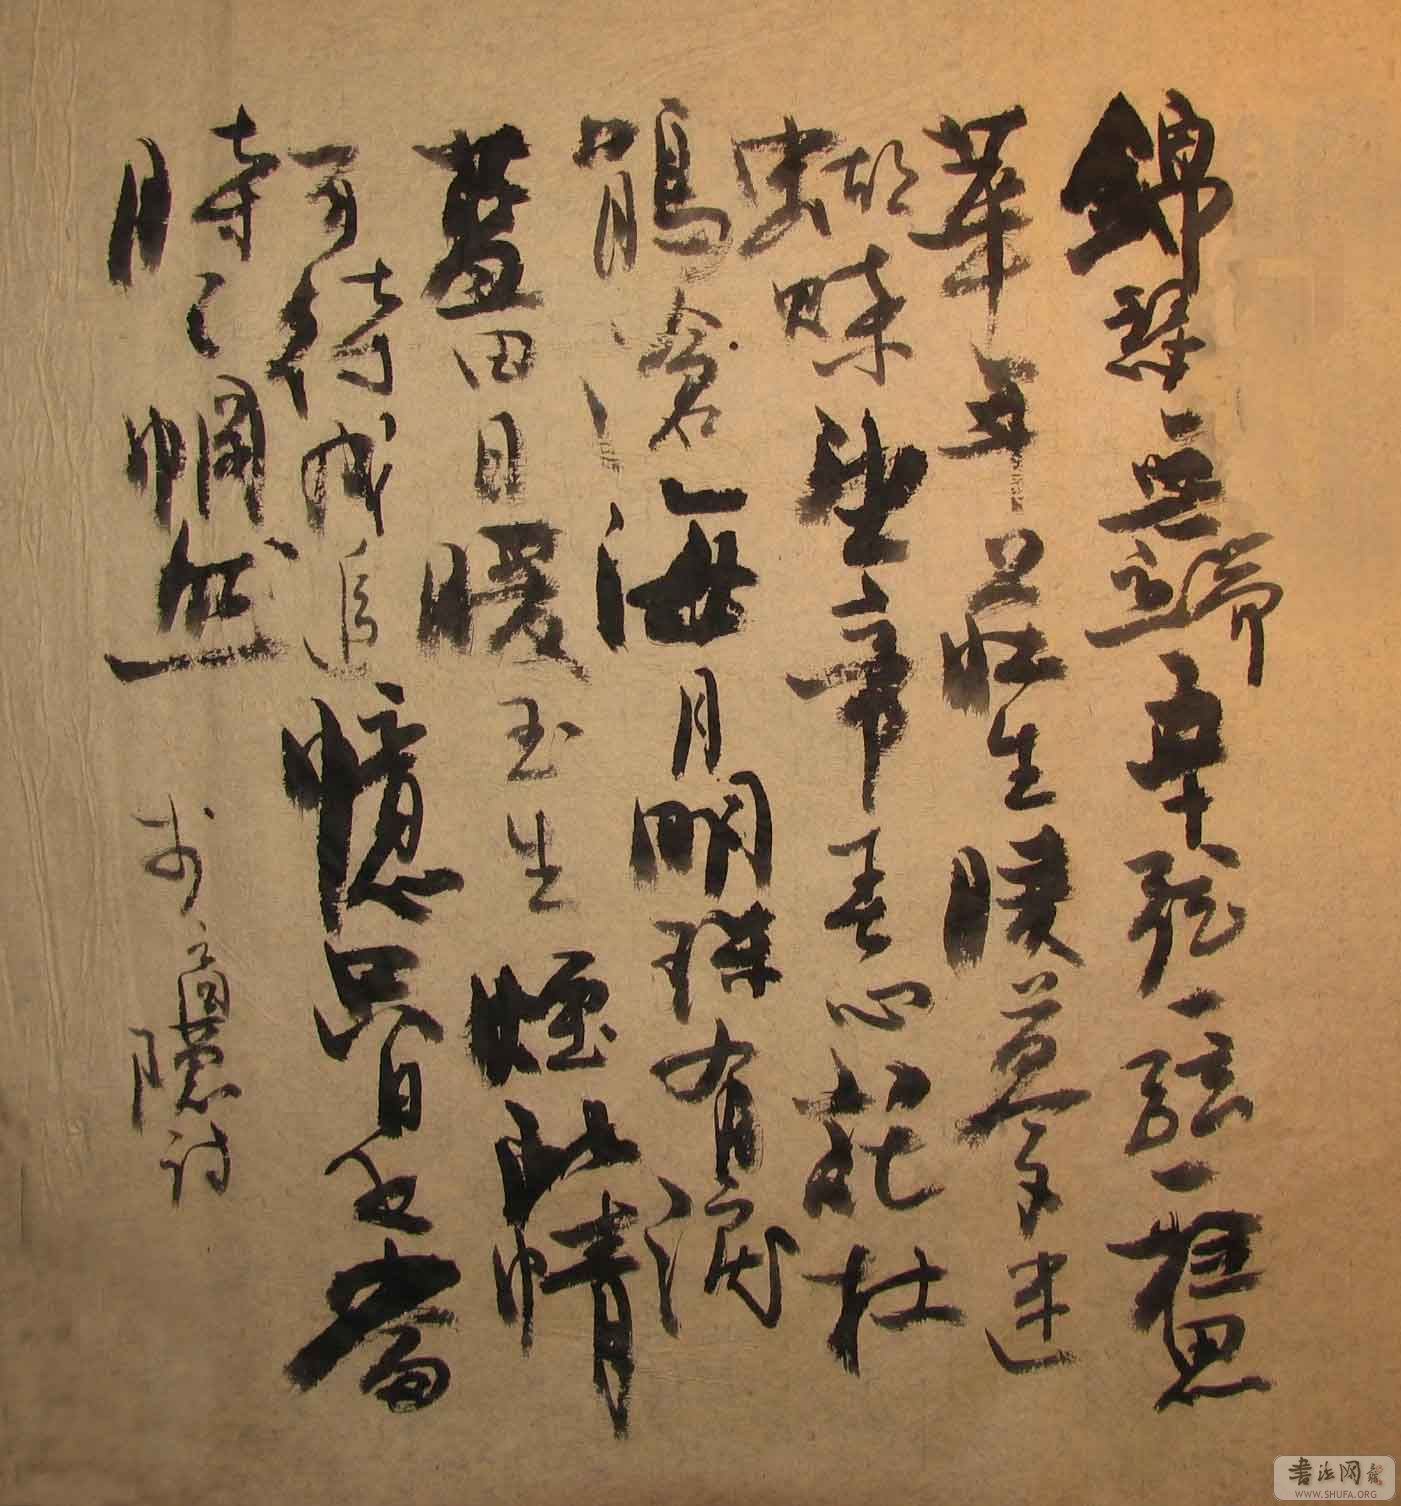 錦瑟無端五十弦一弦一柱思
華年莊生曉夢迷
蝴蝶望帝春心託杜
鵑滄海月明珠有淚
藍田日暖玉生煙此情
可待成追憶只是當
時已惘然
商隱詩
書法网
WWW.SHUFA.ORG